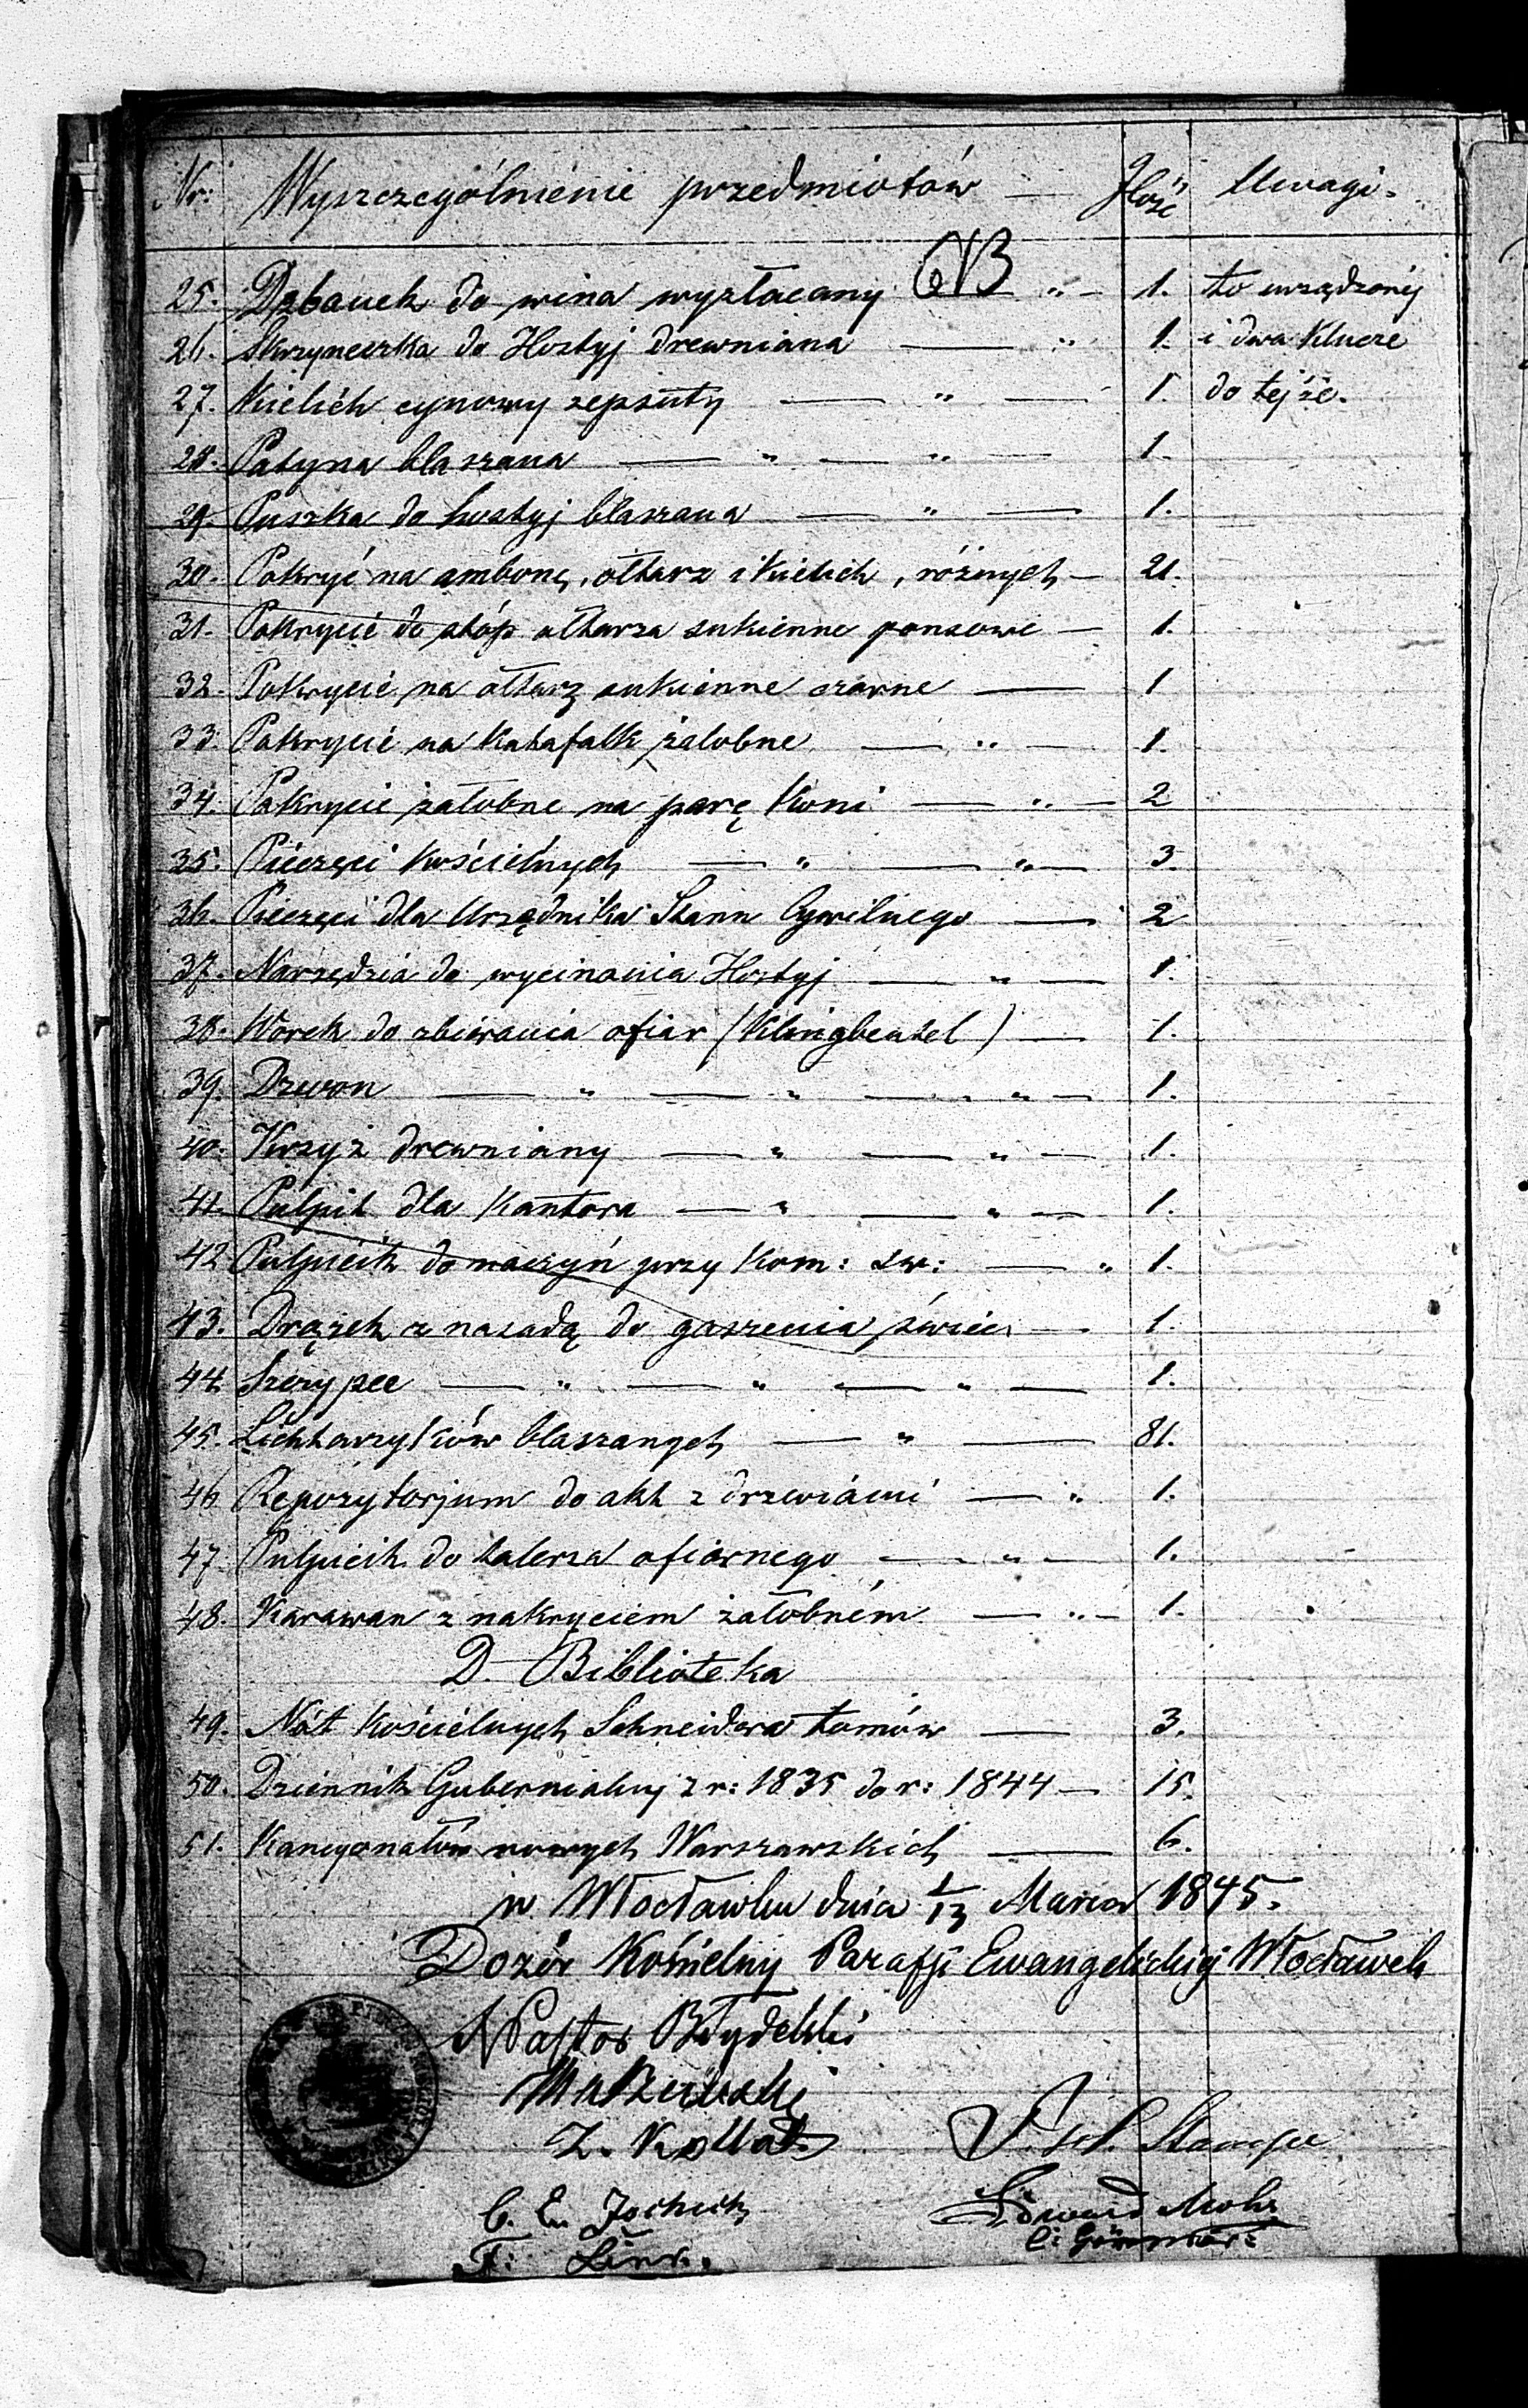 Nr: Wyszczególnienie przedmiotów — Ilość Uwagi.
25. Dzbanek do wina wyzłacany „ — 1. to urządzonéj
26. Skrzyneczka do Hostyj drewniana — „ 1. i dwa Klucze
27. Kielich cynowy zepsuty — „ — 1. do tejże.
28. Patyna blaszana — „ — „ — 1.
29. Puszka do hostyj blaszana — „ — 1.
30. Pokryć na ambonę, ołtarz i Kielich, różnych — 21.
31. Pokrycie do stóp ołtarza sukienne ponsowe — 1.
32. Pokrycie na ołtarz sukienne czarne — 1
33. Pokrycie na Katafalk żalobne — „ — 1.
34. Pokrycie żałobne na parę Koni — „ — 2
35. Pieczęci Kościelnych — „ — „ — 3.
36. Pieczęci dla Urzędnika Stanu Cywilnego — 2
37. Narzędzia do wycinania Hostyj — „ — 1.
38. Worek do zbierania ofiar (Klingbeutel) — 1.
39. Dzwon — „ — „ — „ — 1.
40. Krzyż drewniany — „ — „ — 1.
41. Pulpit dla Kantora — „ — „ — 1.
42 Pulpicik do naczyń przy Kom: św: — „ 1.
43. Drążek z nasadą do gaszenia świec — 1.
44. Szczypce — „ — „ — „ — 1.
45. Lichtarzyków blaszanych — „ — 81.
46 Repozytorjum do akt z drzwiámi — „ 1.
47. Pulpicik do talerza ofiarnego — „ — 1.
48. Karawan z nakryciem żałobném — „ — 1.
D. Biblioteka
49. Nót Kościelnych Schneidera tomów — 3.
50. Dziennik Gubernialny z r: 1835 do r: 1844 — 15.
51. Kancyonałów nowych Warszawskich — 6.
w Włocławku dnia 1/13 Marca 1845.
Dozór Kościelny Parafji Ewangelickiej Włocławek
Pastor
Z. Kollat
Edward Mohr